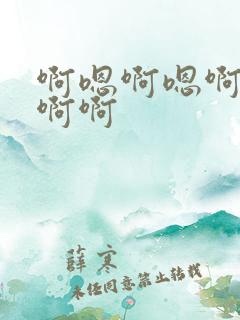 啊嗯啊嗯啊
啊啊
薛寒
未经同意禁止转载